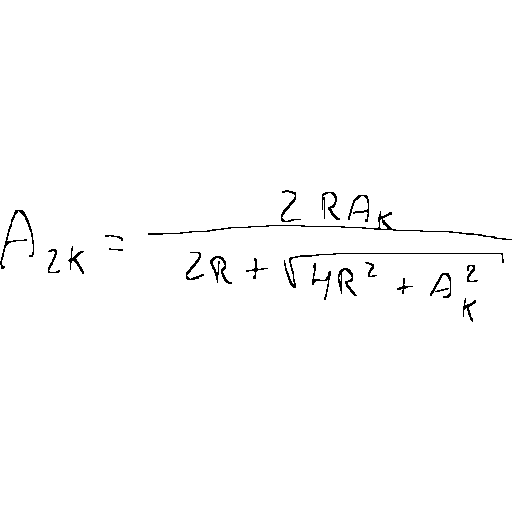 A_{2K} = \frac{2RA_K}{2R + \sqrt{4R^2 + A_K^2}}